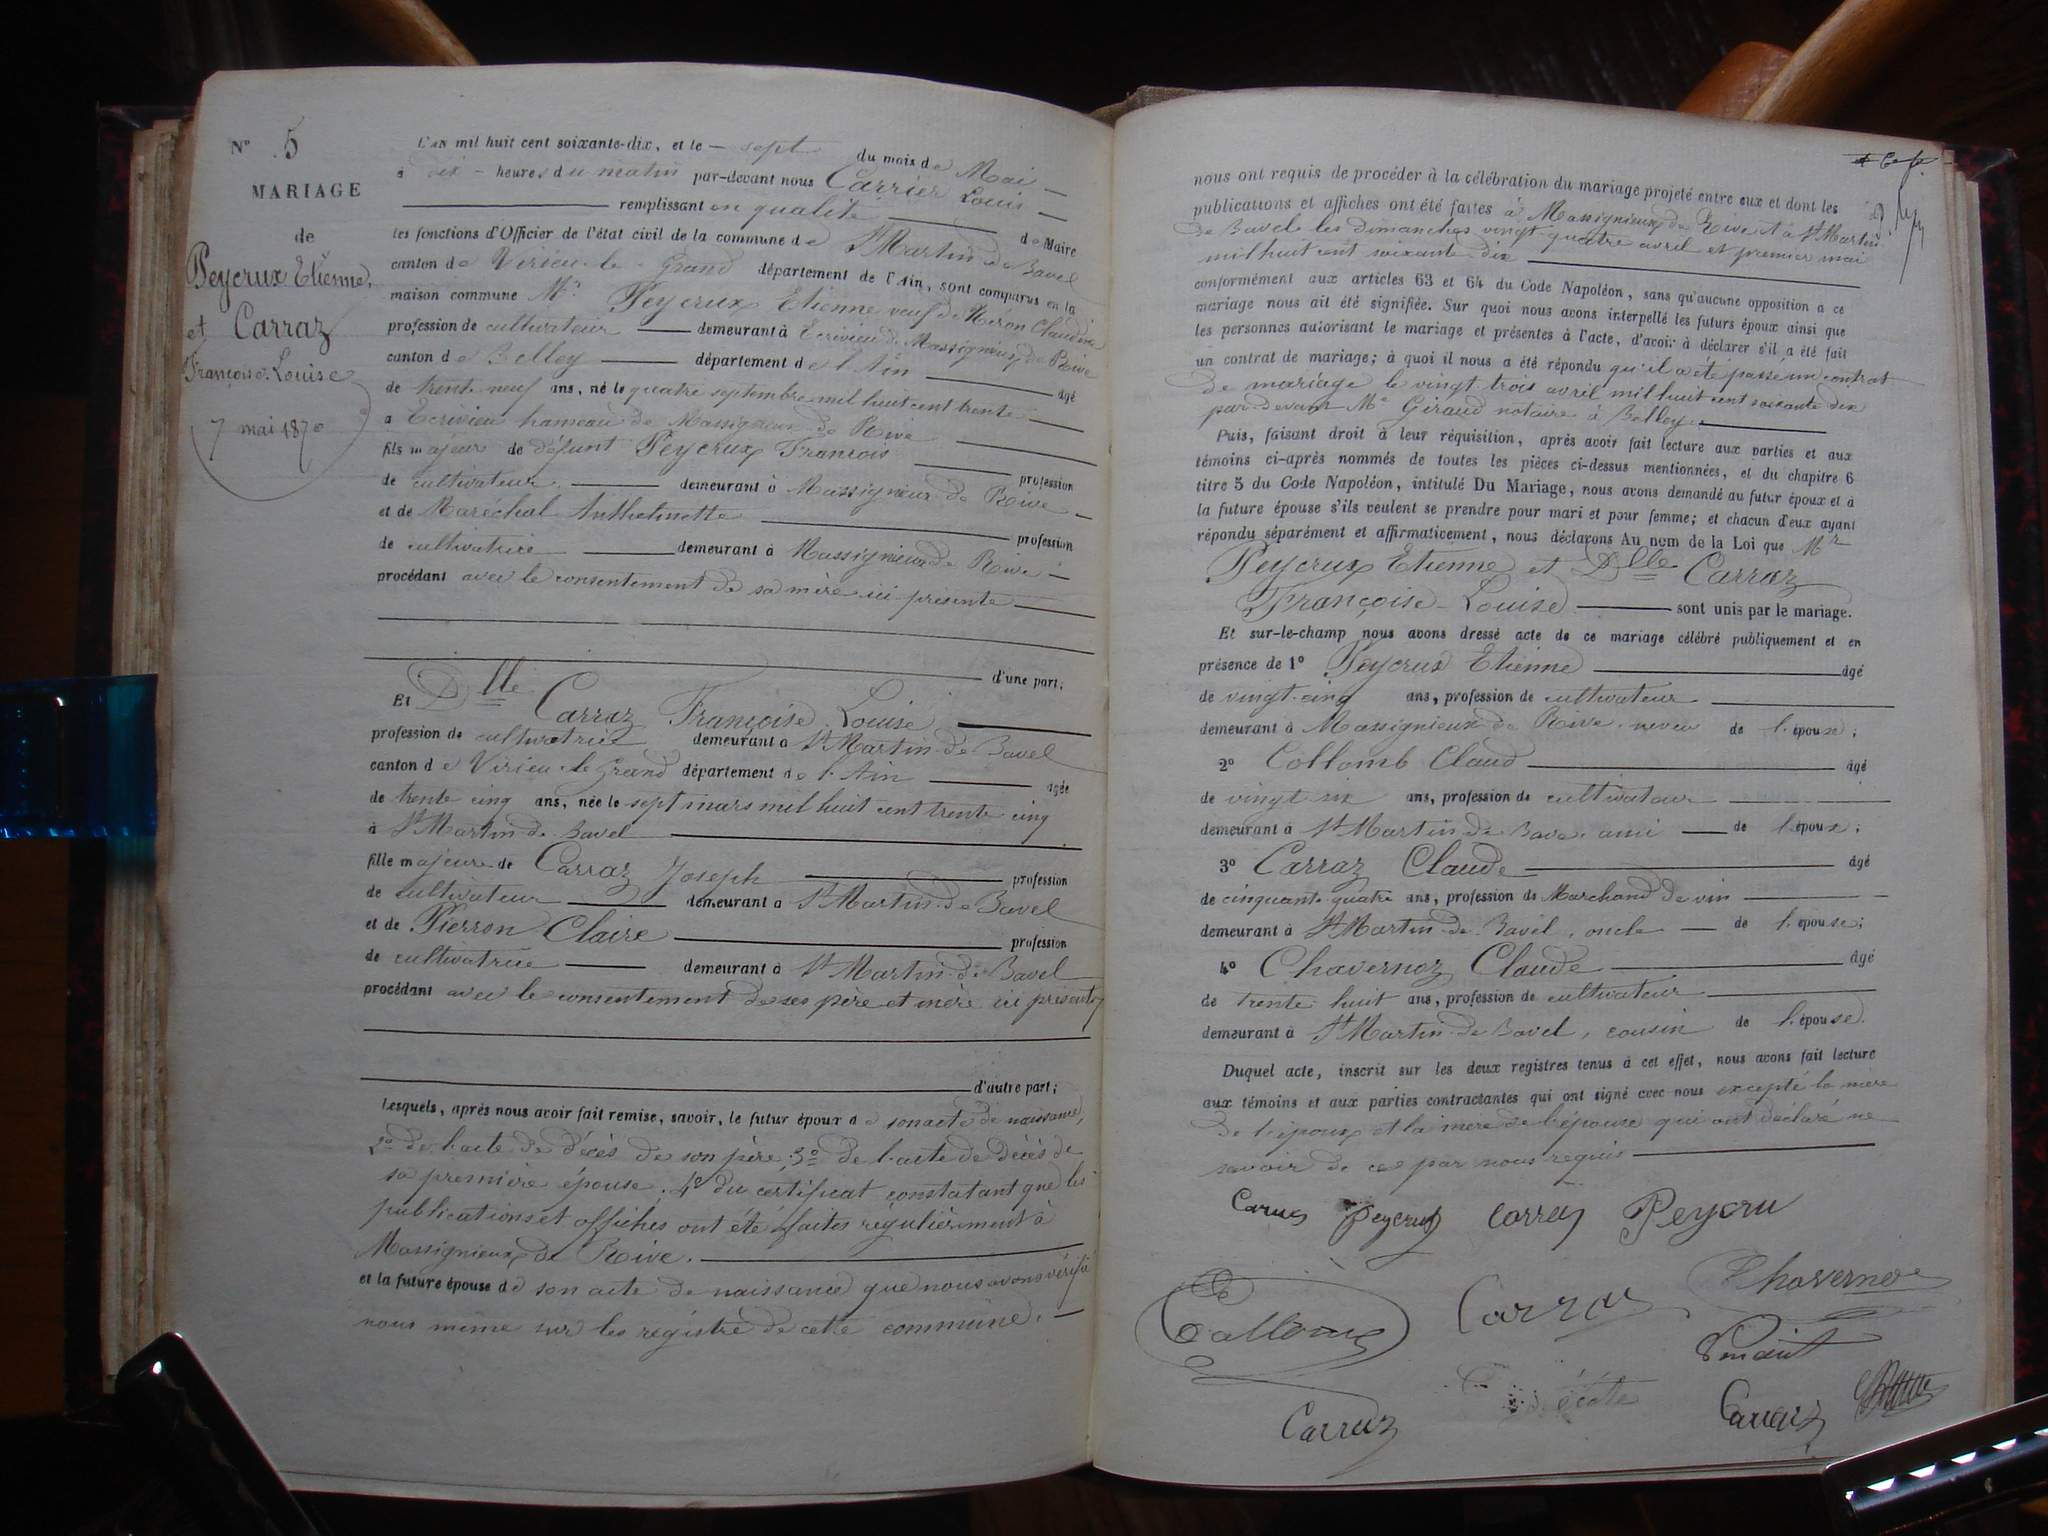 N° 5
MARIAGE
de
Peycrux Etienne,
et Carraz
Françoise-Louise
7 mai 1870
L'AN mil huit cent soixante-dix, et le sept du mois de Mai
à dix heures du matin par-devant nous Carrier Louis
remplissant en qualité de Maire
les fonctions d'Officier de l'état civil de la commune de St Martin de Bavel
canton de Virieu-le-Grand département de l'Ain, sont comparus en la
maison commune Mr Peycrux Etienne veuf de Néron Claudine
profession de cultivateur demeurant à Ecrivieu de Massignieux de Rive
canton de Belley département de l'Ain âgé
de trente neuf ans, né le quatre septembre mil huit cent trente
à Ecrivieu hameau de Massignieux de Rive
fils majeur de défunt Peycrux François profession
de cultivateur demeurant à Massignieux de Rive
et de Maréchal Anthelmette profession
de cultivatrice demeurant à Massignieux de Rive
procédant avec le consentement de sa mère ici présente
d'une part;
Et Dlle Carraz Françoise Louise
profession de cultivatrice demeurant à St Martin de Bavel
canton de Virieu-le-Grand département de l'Ain agée
de trente cinq ans, née le sept mars mil huit cent trente cinq
à St Martin de Bavel
fille majeure de Carraz Joseph profession
de cultivateur demeurant à St Martin de Bavel
et de Pierron Claire profession
de cultivatrice demeurant à St Martin de Bavel
procédant avec le consentement de ses père et mère ici présents
d'autre part;
Lesquels, après nous avoir fait remise, savoir, le futur époux de son acte de naissance,
2° de l'acte de décès de son père; 3° de l'acte de décès de
sa première épouse; 4° du certificat constatant que les
publications et affiches ont été faites régulièrement à
Massignieux de Rive.
et la future épouse de son acte de naissance que nous avons vérifié
nous même sur les régistre de cette commune.
nous ont requis de procéder à la célébration du mariage projeté entre eux et dont les
publications et affiches ont été faites à Massignieux de Rive et à St Martin
de Bavel les dimanches vingt quatre avril et premier mai
mil huit cent soixante dix
conformément aux articles 63 et 64 du Code Napoléon, sans qu'aucune opposition a ce
mariage nous ait été signifiée. Sur quoi nous avons interpellé les futurs époux ainsi que
les personnes autorisant le mariage et présentes à l'acte, d'avoir à déclarer s'il a été fait
un contrat de mariage; à quoi il nous a été répondu qu'il a été passé un contrat
de mariage le vingt trois avril mil huit cent soixante dix
par-devant Me Giraud notaire à Belley.
Puis, faisant droit à leur réquisition, après avoir fait lecture aux parties et aux
témoins ci-après nommés de toutes les pièces ci-dessus mentionnées, et du chapitre 6
titre 5 du Code Napoléon, intitulé Du Mariage, nous avons demandé au futur époux et à
la future épouse s'ils veulent se prendre pour mari et pour femme; et chacun d'eux ayant
répondu séparément et affirmativement, nous déclarons Au nom de la Loi que Mr
Peycrux Etienne et Dlle Carraz
Françoise-Louise sont unis par le mariage.
Et sur-le-champ nous avons dressé acte de ce mariage célébré publiquement et en
présence de 1° Peycrux Etienne âgé
de vingt-cinq ans, profession de cultivateur
demeurant à Massignieux de Rive, neveu de l'époux;
2° Collomb Claud âgé
de vingt six ans, profession de cultivateur
demeurant à St Martin de Bave. ami de l'époux;
3° Carraz Claude âgé
de cinquante-quatre ans, profession de Marchand de vin
demeurant à St Martin de Bavel, oncle de l'épouse;
4° Chavernoz Claude âgé
de trente huit ans, profession de cultivateur
demeurant à St Martin de Bavel, cousin de l'épouse.
Duquel acte, inscrit sur les deux registres tenus à cet effet, nous avons fait lecture
aux témoins et aux parties contractantes qui ont signé avec nous excepté la mère
de l'époux et la mère de l'épouse qui ont déclaré ne
savoir de ce par nous requis
Peycrux Carraz Peycru
Carraz Chavernoz
Carraz Carraz